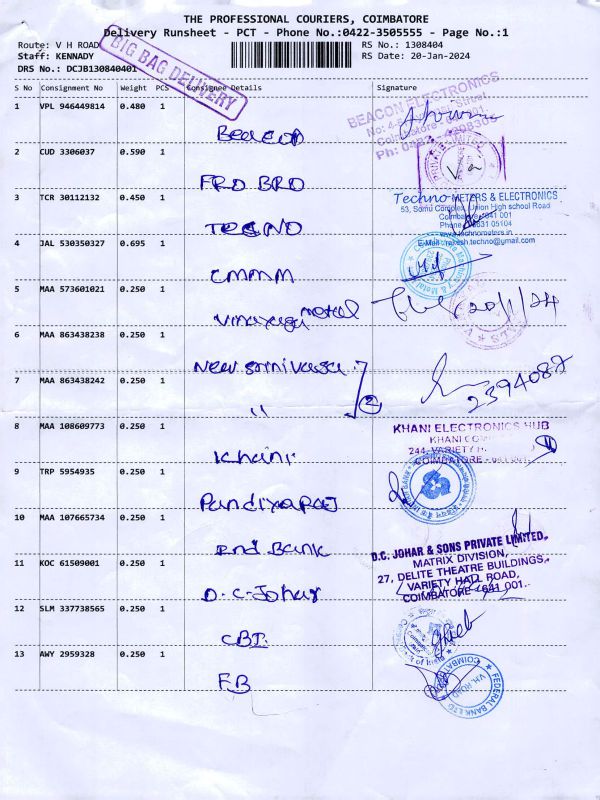 THE PROFESSIONAL COURIERS, COIMBATORE
Delivery Runsheet - PCT - Phone No.:0422-3505555 - Page No.:1
Route: V H ROAD RS No.: 1308404
Staff: KENNADY RS Date: 20-Jan-2024
DRS No.: DCJB130840401
BIG BAG DELIVERY
S No Consignment No Weight PCS Consignee Details Signature
1 VPL 946449814 0.480 1
Beacon
BEACON ELECTRONICS
2 CUD 3306037 0.590 1
FRD BRD
3 TCR 30112132 0.450 1
TECNO
Techno METERS & ELECTRONICS
53, Somu Complex, Union High school Road
Coimbatore - 641 001
www.technometers.in
E-Mail: rakesh.techno@yahoo.com
4 JAL 530350327 0.695 1
CMMM
5 MAA 573601021 0.250 1
Vinayaga metal
20/1/24
6 MAA 863438238 0.250 1
New Srinivasa
7 MAA 863438242 0.250 1
" 2
2394087
8 MAA 108609773 0.250 1
Khani
KHANI ELECTRONICS HUB
244, VARIETY
COIMBATORE
9 TRP 5954935 0.250 1
Pandiyaraj
10 MAA 107665734 0.250 1
Ind Bank
11 KOC 61509001 0.250 1
D.C-Johar
D.C. JOHAR & SONS PRIVATE LIMITED,
MATRIX DIVISION,
27, DELITE THEATRE BUILDINGS,
VARIETY HALL ROAD,
COIMBATORE - 641 001.
12 SLM 337738565 0.250 1
CBI
13 AWY 2959328 0.250 1
FB
FEDERAL BANK LTD
COIMBATORE
V.H. ROAD